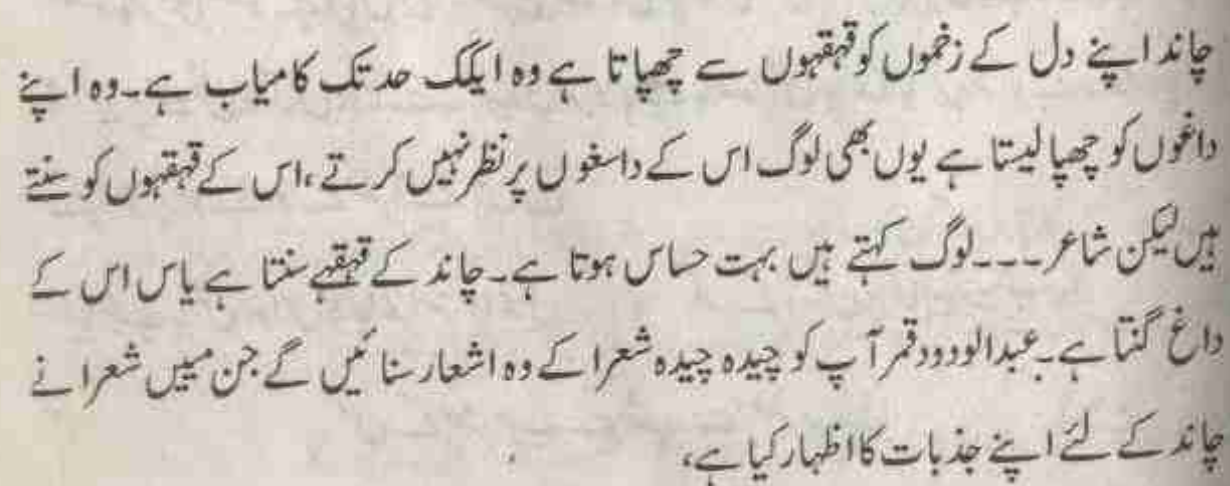 چاند اپنے دل کے زخموں کو قہقہوں سے چھپاتا ہے وہ ایکک حد تک کامیاب ہے۔وہ اپنے
داغوں کو چھپا لیستا ہے یوں بھی لوگ اس کے داسغوں پر نظر نہیں کرتے ،اس کے قہقہوں کو سنتے
ہیں لیکن شاعر۔۔۔لوگ کہتے ہیں بہت حساس ہوتا ہے۔چاند کے قہقہے سنتا ہے یاس اس کے
داغ گنتا ہے۔عبدالودود قمر آپ کو چیدہ چیدہ شعرا کے وہ اشعار سنائیں گے جن مییں شعرا نے
چاند کے لئے اپنے جذبات کا اظہار کیا ہے،